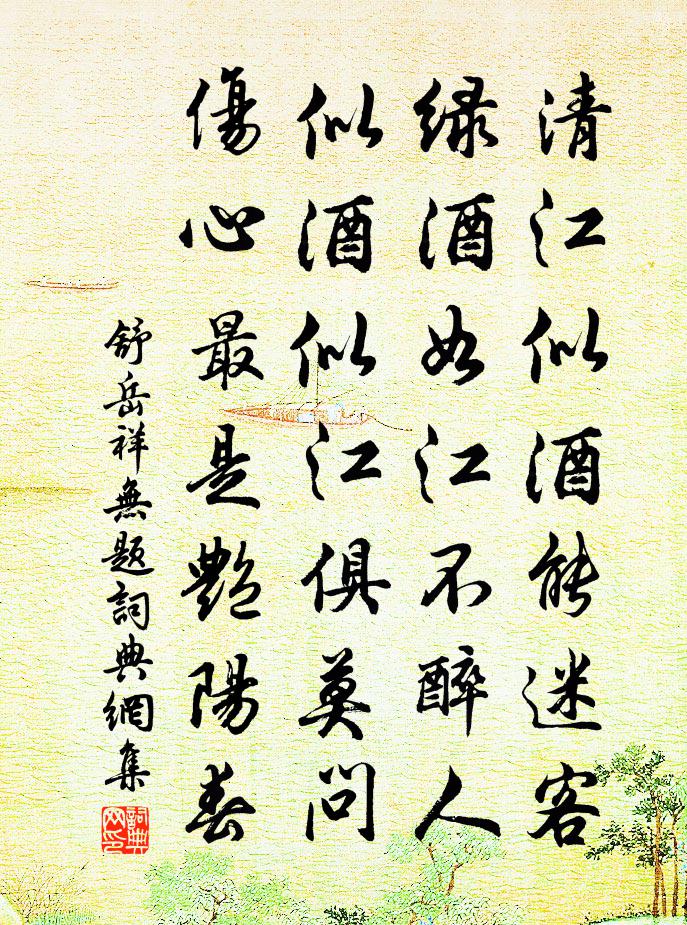 清江似酒能迷客
绿酒如江不醉人
似酒似江俱莫问
傷心最是艷陽春
舒岳祥無题詞典網集
詞典网印